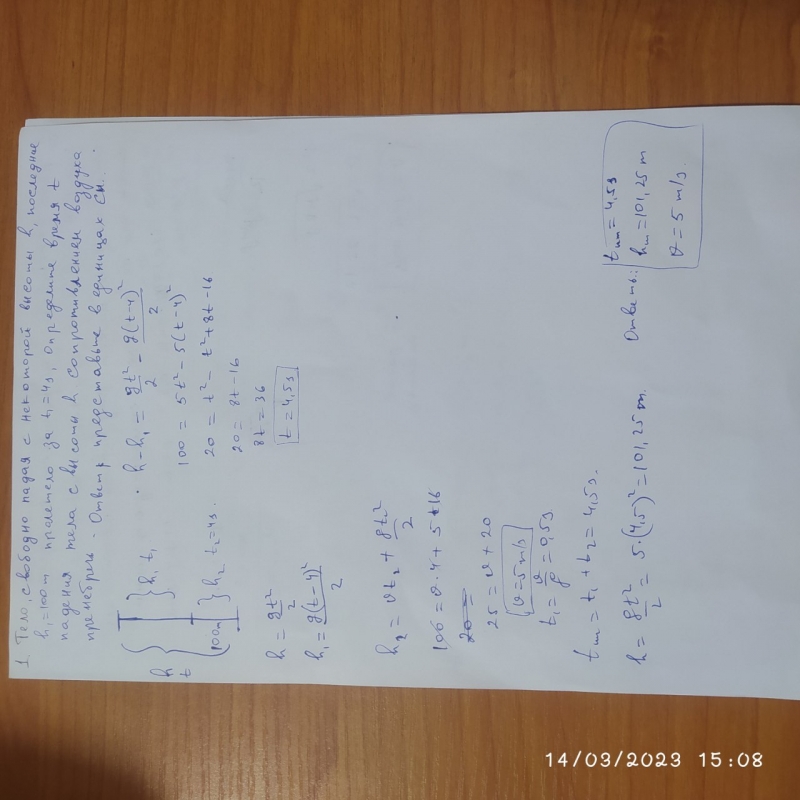 1. Тело, свободно падая с некоторой высоты h, последние
h₁=100m пролетело за t₁=4s, Определите время t
падения тела с высоты h сопротивлением воздуха
пренебречь. Ответ представьте в единицах СИ.
h
t
} h₁ t₁
100m } h₂ t₂=4s.
h = gt²/2
h₁ = g(t-4)²/2
h-h₁ = gt²/2 - g(t-4)²/2
100 = 5t² - 5(t-4)²
20 = t² - t² + 8t - 16
20 = 8t - 16
8t = 36
t = 4,5s
h₂ = vt₂ + gt₂²/2
100 = v·4 + 5·16
20=
25 = v + 20
v = 5 m/s
t₁ = v/g = 0,5s
tum = t₁ + t₂ = 4,5s.
h = gt²/2 = 5·(4,5)² = 101,25 m.
Ответ:
tum = 4,5s
hm = 101,25 m
v = 5 m/s.
14/03/2023 15:08